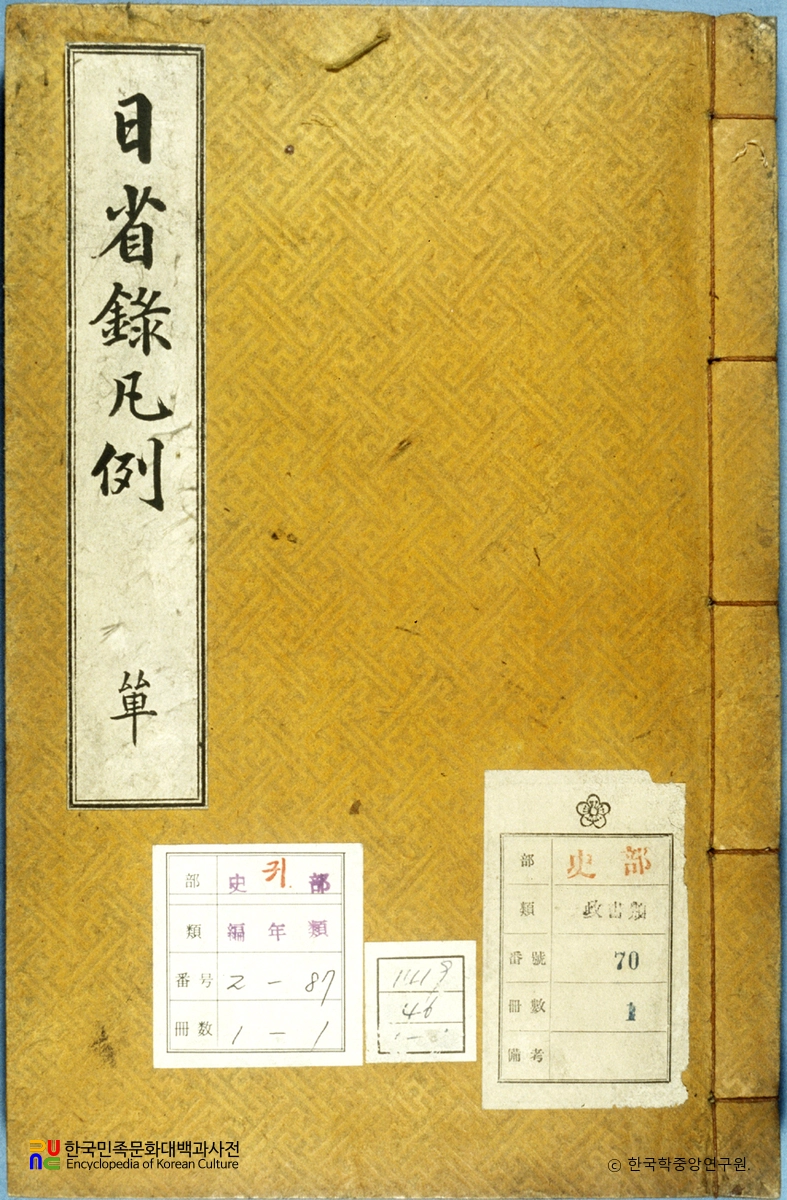 日省錄凡例
單
部 史 귀 部
類 編年類
番号 2-87
冊数 1-1
部 史部
類 政書類
番號 70
冊數 1
備考
한국민족문화대백과사전
Encyclopedia of Korean Culture
© 한국학중앙연구원